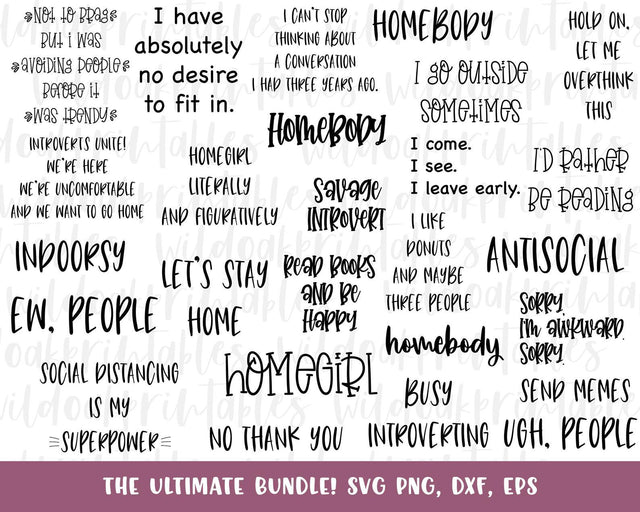 *NOT TO BRAG*
BUT I WAS
*AVOIDING PEOPLE*
BEFORE IT
*WAS TRENDY*
I have
absolutely
no desire
to fit in.
I CAN'T STOP
THINKING ABOUT
A CONVERSATION
I HAD THREE YEARS AGO.
HOMEBODY
HOLD ON,
LET ME
OVERTHINK
THIS
I GO OUTSIDE
SOMETIMES
HOMEBODY
INTROVERTS UNITE!
WE'RE HERE
WE'RE UNCOMFORTABLE
AND WE WANT TO GO HOME
HOMEGIRL
LITERALLY
AND FIGURATIVELY
SAVAGE
INTROVERT
I come.
I see.
I leave early.
I'D RATHER
BE READING
I LIKE
DONUTS
AND MAYBE
THREE PEOPLE
INDOORSY
LET'S STAY
HOME
READ BOOKS
AND BE
HAPPY
ANTISOCIAL
EW, PEOPLE
homebody
SORRY.
I'M AWKWARD.
SORRY.
SOCIAL DISTANCING
IS MY
SUPERPOWER
HOMEGIRL
BUSY
INTROVERTING
SEND MEMES
NO THANK YOU
UGH, PEOPLE
wildoakprintables
THE ULTIMATE BUNDLE! SVG PNG, DXF, EPS